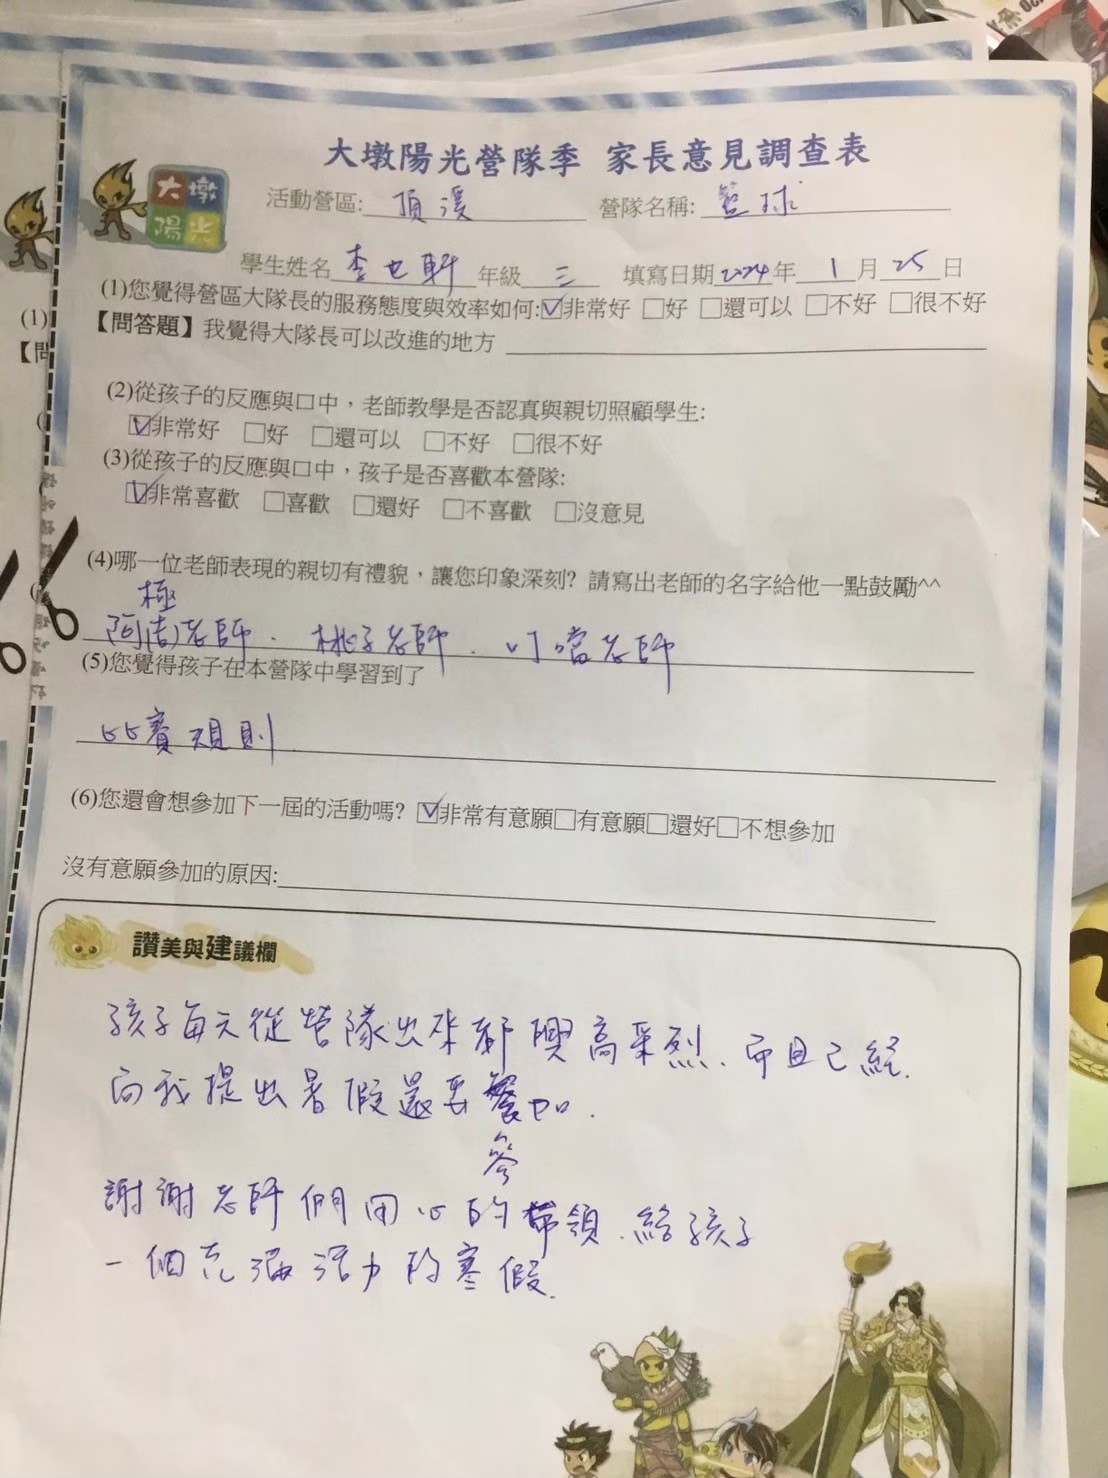 大墩陽光營隊季 家長意見調查表
大墩
陽光
活動營區: 頂溪 營隊名稱: 籃球
學生姓名 李也軒 年級 三 填寫日期 2024 年 1 月 25 日
(1)您覺得營區大隊長的服務態度與效率如何:☑非常好 □好 □還可以 □不好 □很不好
【問答題】我覺得大隊長可以改進的地方
(2)從孩子的反應與口中，老師教學是否認真與親切照顧學生:
☑非常好 □好 □還可以 □不好 □很不好
(3)從孩子的反應與口中，孩子是否喜歡本營隊:
☑非常喜歡 □喜歡 □還好 □不喜歡 □沒意見
(4)哪一位老師表現的親切有禮貌，讓您印象深刻? 請寫出老師的名字給他一點鼓勵^^
極
阿 老師、桃子老師、叮噹老師
(5)您覺得孩子在本營隊中學習到了
比賽規則
(6)您還會想參加下一屆的活動嗎? ☑非常有意願□有意願□還好□不想參加
沒有意願參加的原因:
讚美與建議欄
孩子每天從營隊出來都興高采烈、而且已經
向我提出暑假還要 加.
參
謝謝老師們用心的帶領、給孩子
一個充滿活力的寒假.
(1)
【問